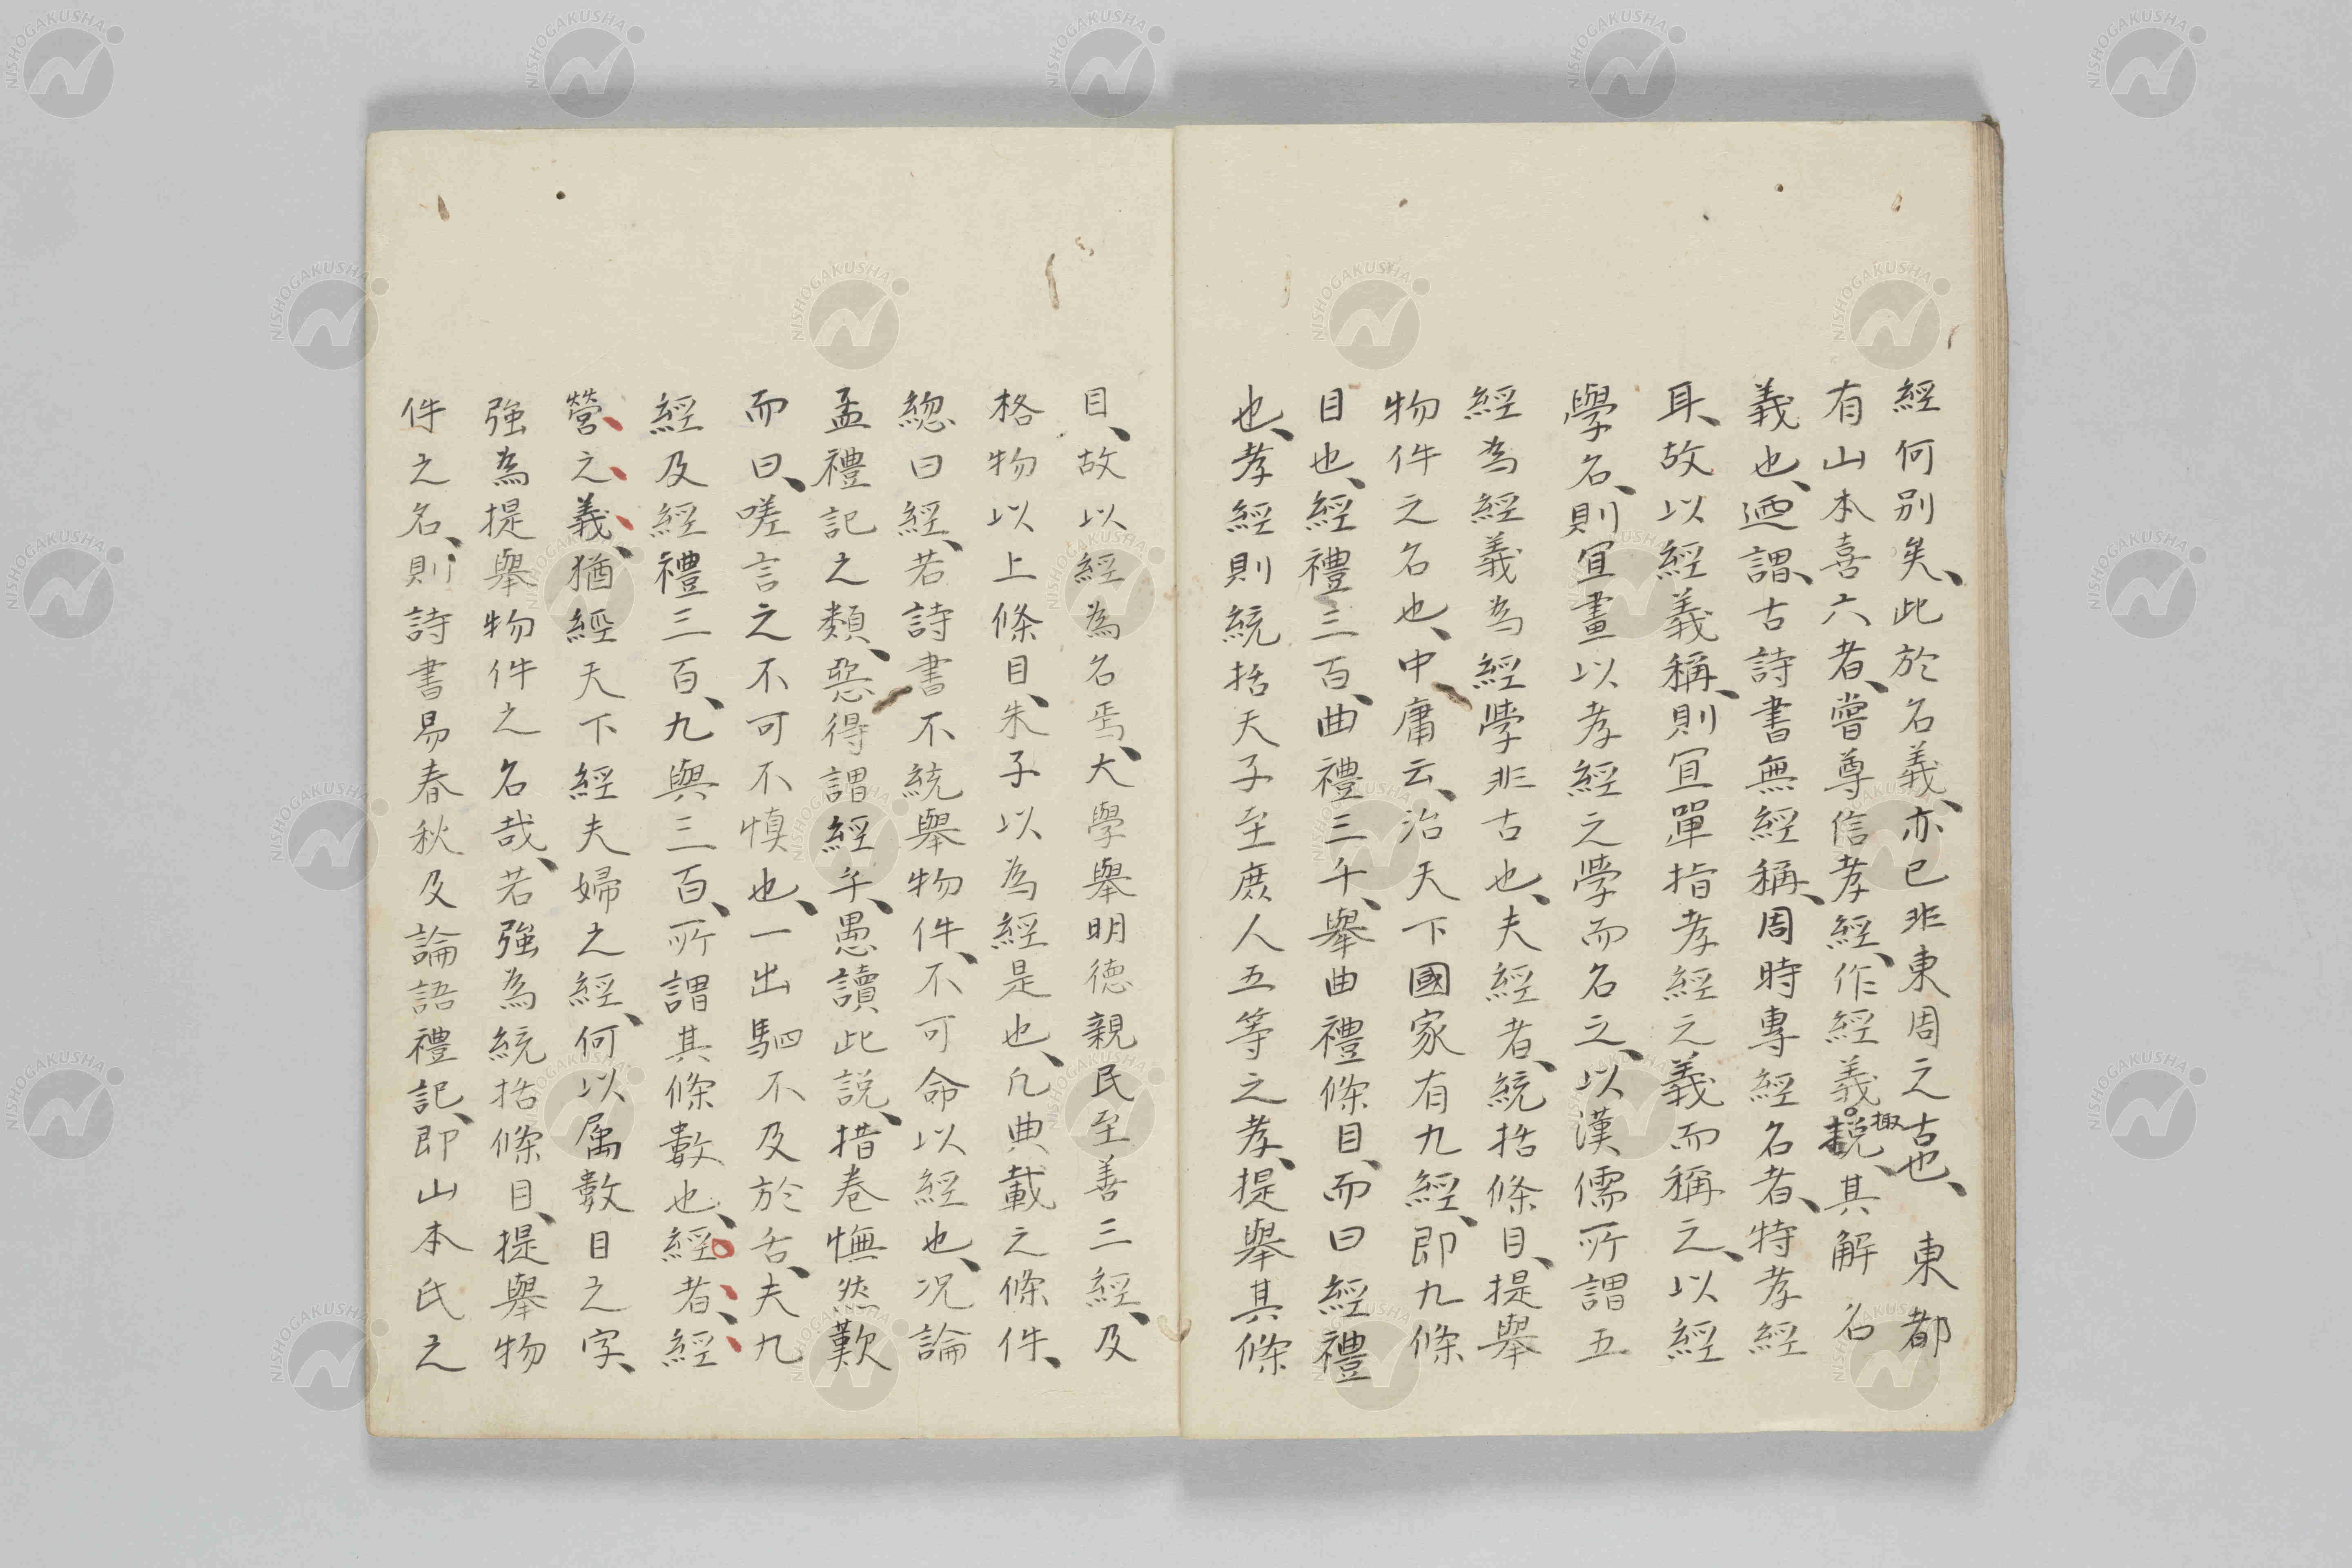 經何別矣、此於名義、亦已非東周之古也、東都
有山本喜六者、嘗尊信孝經、作經義掫說、其解名
義也、迺謂、古詩書無經稱、周時專經名者、特孝經
耳、故以經義稱、則宜單指孝經之義而稱之、以經
學名、則宜畫以孝經之學而名之、以漢儒所謂五
經為經義為經學非古也、夫經者、統括條目、提舉
物件之名也、中庸云、治天下國家有九經、即九條
目也、經禮三百、曲禮三千、舉曲禮條目、而曰經禮
也、孝經則統括天子至庶人五等之孝、提舉其條
目、故以經為名焉、大學舉明德親民至善三經、及
格物以上條目、朱子以為經是也、凡典載之條件、
總曰經、若詩書不統舉物件、不可命以經也、況論
孟禮記之類、惡得謂經乎、愚讀此說、措卷憮然歎
而曰、嗟言之不可不慎也、一出駟不及於舌、夫九
經及經禮三百、九與三百、所謂其條數也、經者、經
營之義、猶經天下經夫婦之經、何以属數目之字、
強為提舉物件之名哉、若強為統括條目、提舉物
件之名、則詩書易春秋及論語禮記、即山本氏之
NISHOGAKUSHA